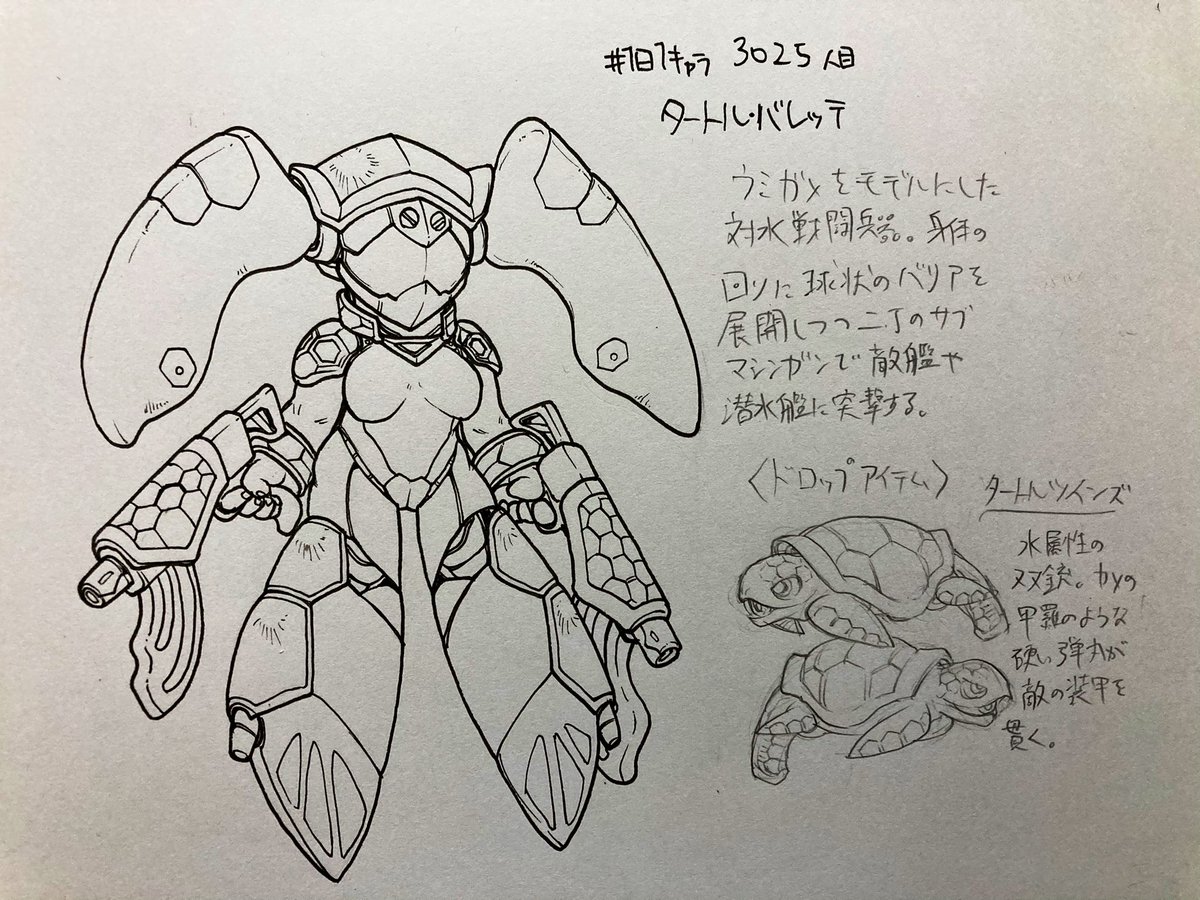 #1日1キャラ 3025人目
タートル・バレッテ
ウミガメをモデルにした
対水戦闘兵器。身体の
回りに球状のバリアを
展開しつつ二丁のサブ
マシンガンで敵艦や
潜水艦に突撃する。
〈ドロップアイテム〉
タートルツインズ
水属性の
双銃。カメの
甲羅のような
硬い弾丸が
敵の装甲を
貫く。